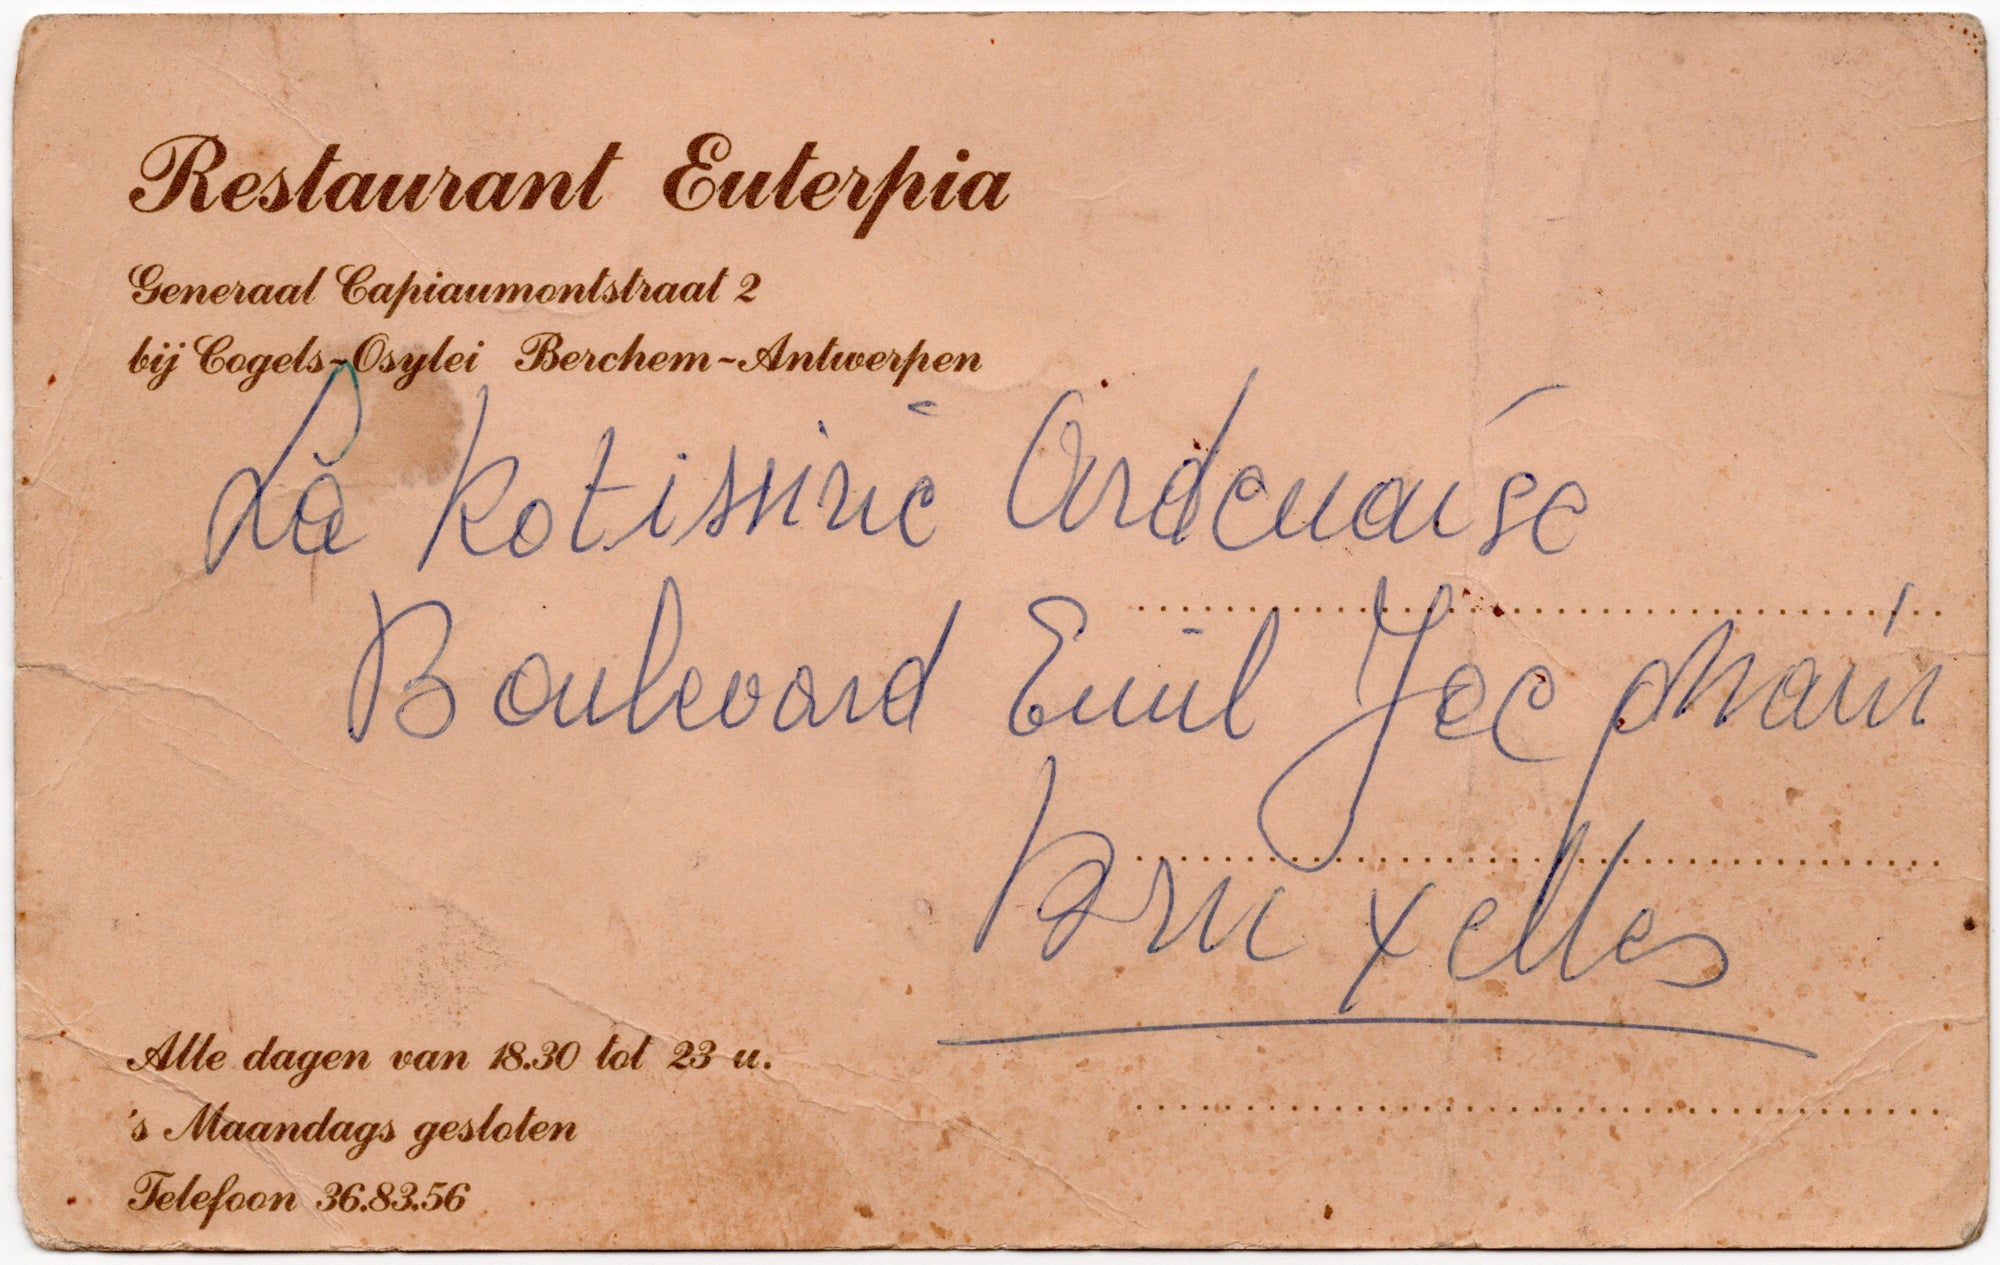 Restaurant Euterpia
Generaal Capiaumontstraat 2
bij Cogels-Osylei Berchem-Antwerpen
La Rotisirie Ardenaise
Boulevard Emil Jecqmain
Bruxelles
Alle dagen van 18.30 tot 23 u.
's Maandags gesloten
Telefoon 36.83.56